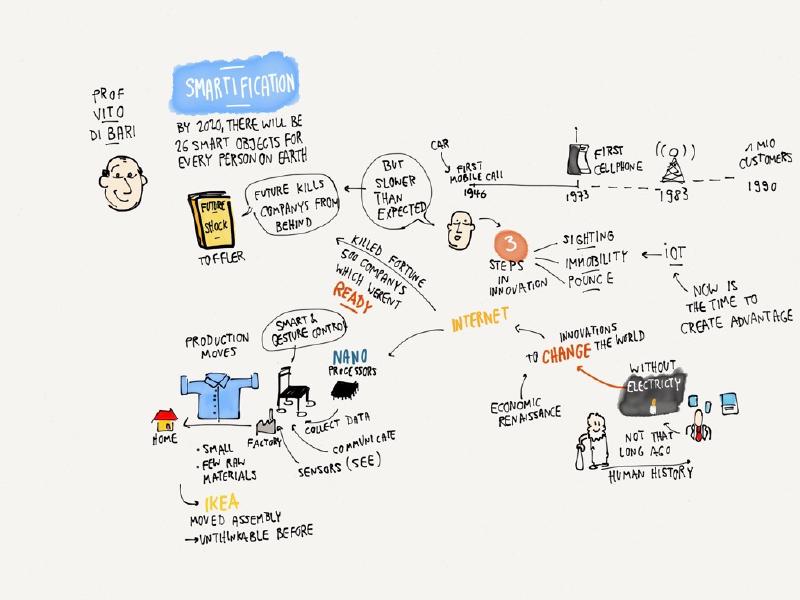 PROF
VITO
DI BARI
SMARTIFICATION
BY 2020, THERE WILL BE
26 SMART OBJECTS FOR
EVERY PERSON ON EARTH
FUTURE
SHOCK
TOFFLER
FUTURE KILLS
COMPANYS FROM
BEHIND
BUT
SLOWER
THAN
EXPECTED
CAR
FIRST
MOBILE CALL
1946
FIRST
CELLPHONE
1973
1983
1 MIO
CUSTOMERS
1990
3
STEPS
IN
INNOVATION
SIGHTING
IMMOBILITY
POUNCE
IOT
NOW IS
THE TIME TO
CREATE ADVANTAGE
KILLED FORTUNE
500 COMPANYS
WHICH WERENT
READY
INTERNET
INNOVATIONS
TO CHANGE THE WORLD
ECONOMIC
RENAISSANCE
WITHOUT
ELECTRICTY
NOT THAT
LONG AGO
HUMAN HISTORY
SMART &
GESTURE CONTROL
NANO
PROCESSORS
PRODUCTION
MOVES
HOME
FACTORY
COLLECT DATA
COMMUNICATE
SENSORS (SEE)
• SMALL
• FEW RAW
MATERIALS
IKEA
MOVED ASSEMBLY
→UNTHINKABLE BEFORE